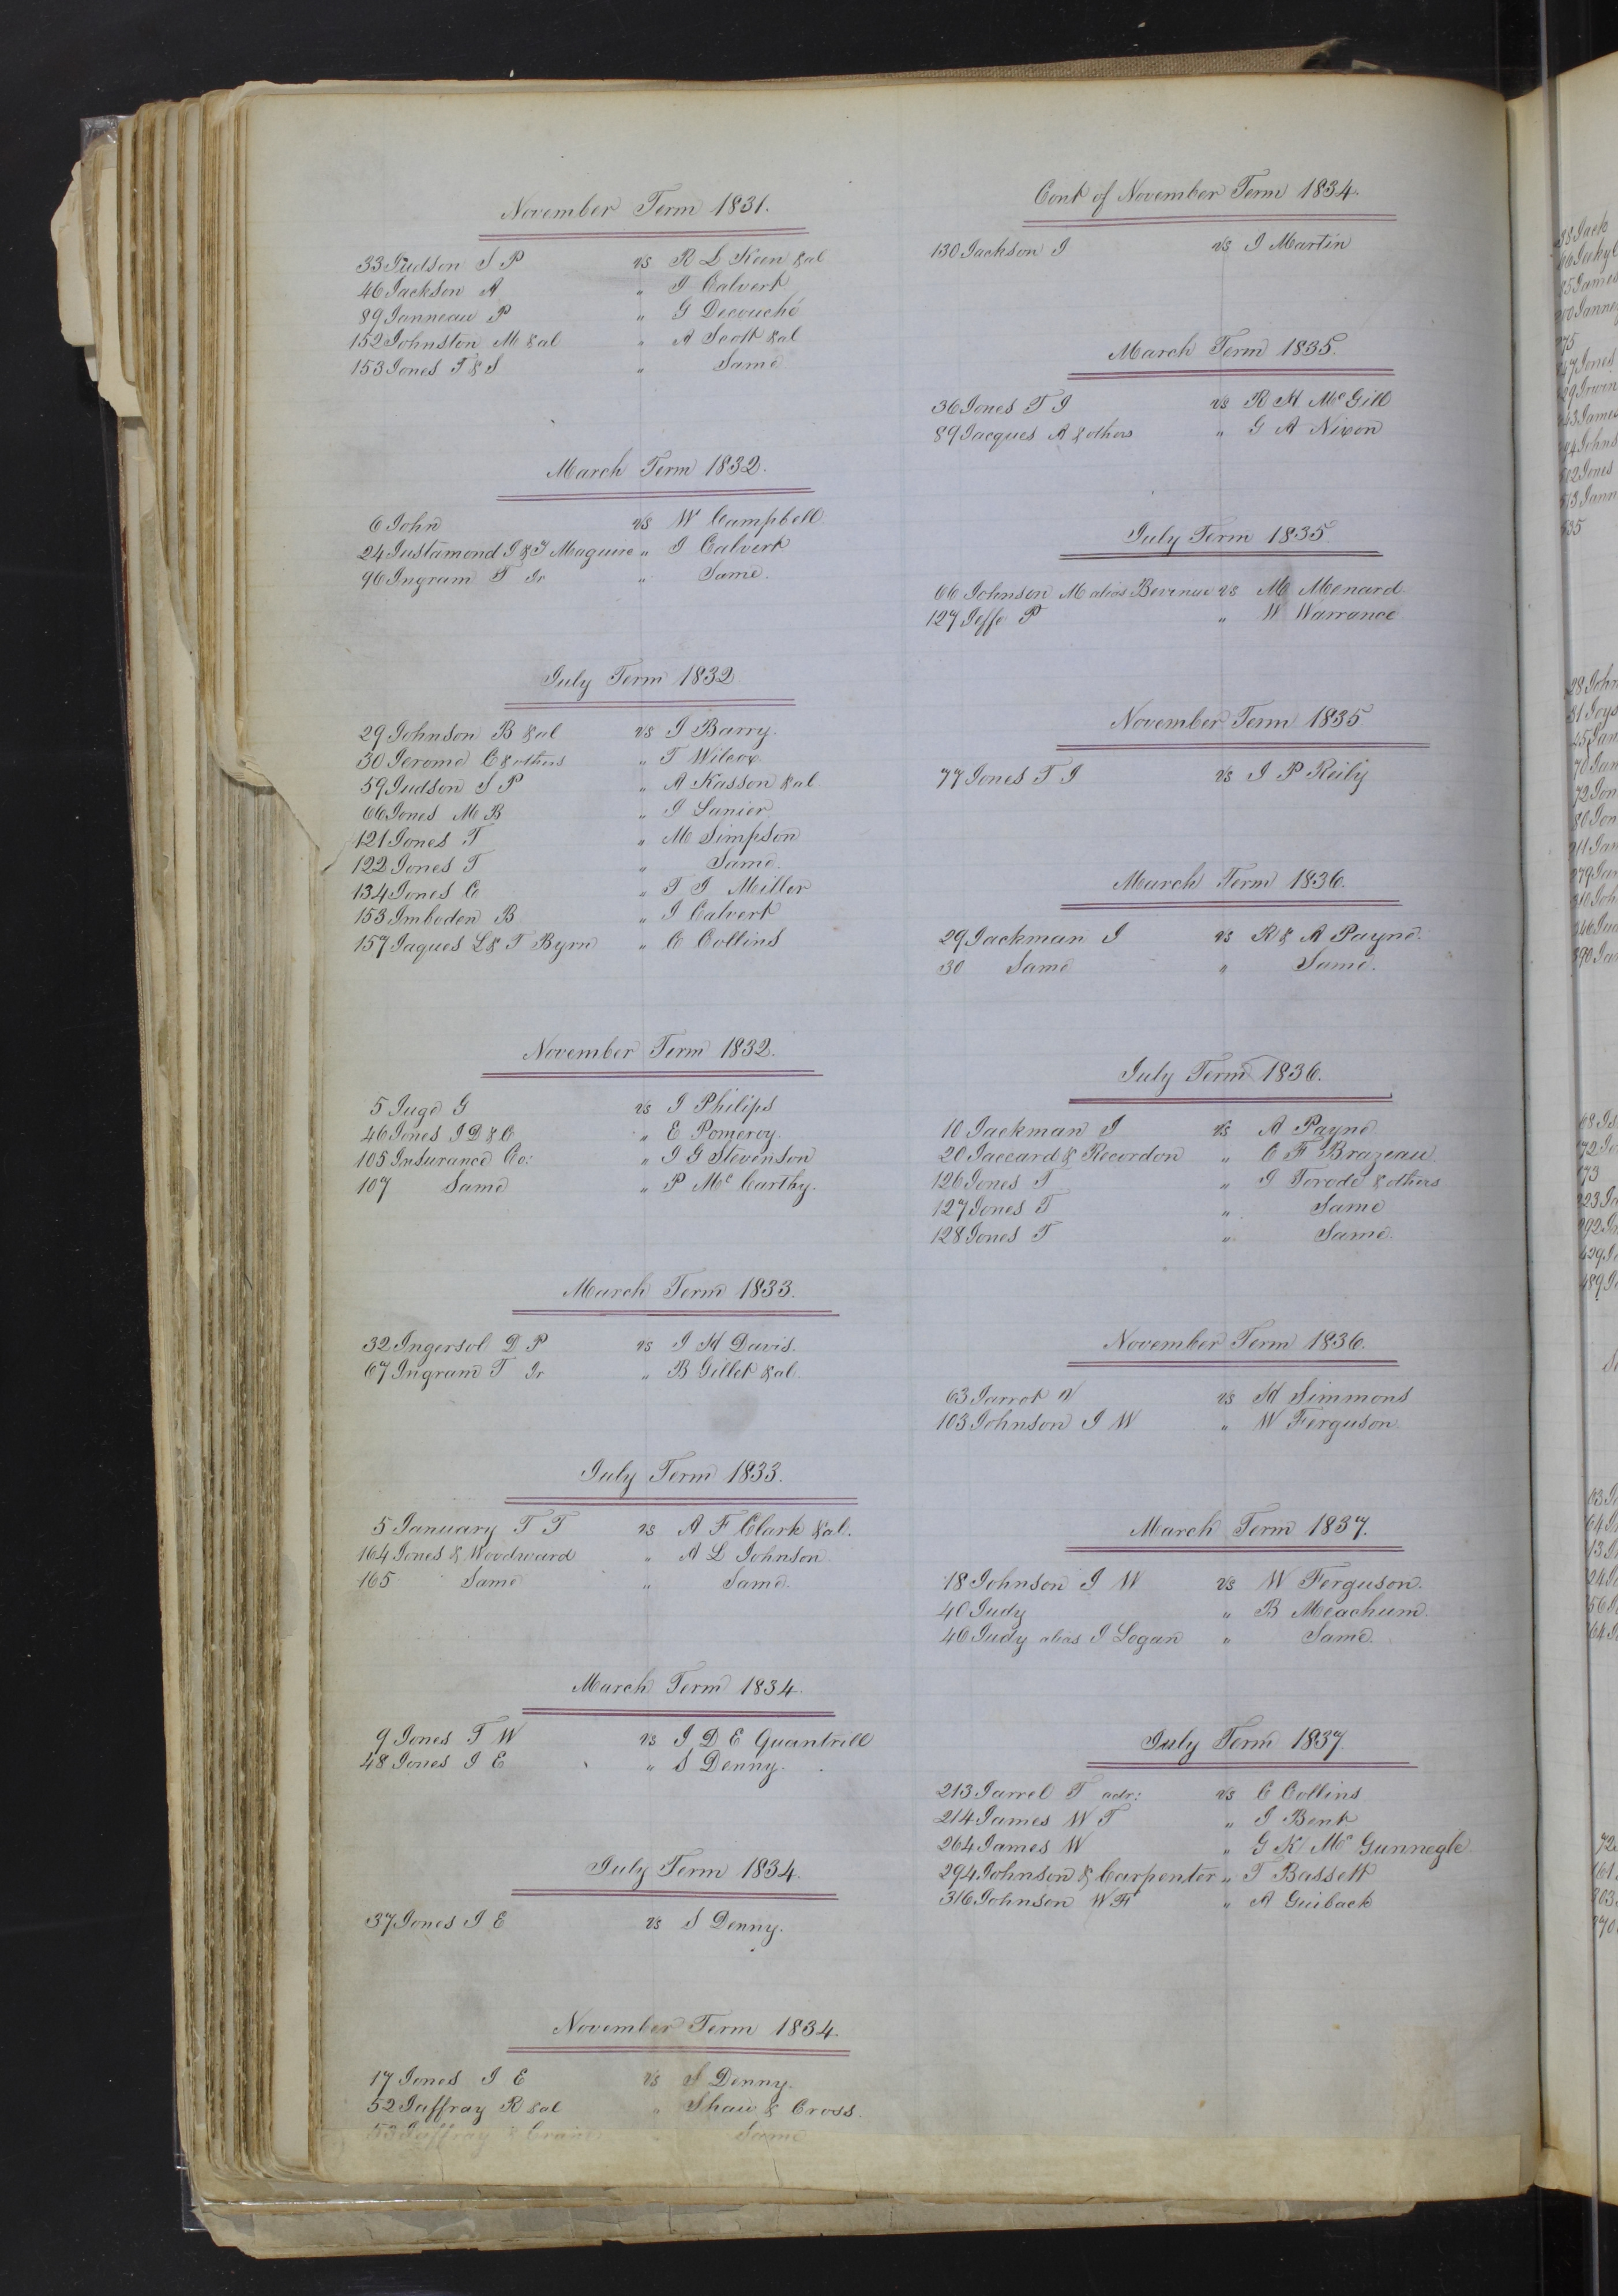 November Term 1831.
33 Judson S P vs R L Keen &al
46 Jackson A " J Calvert
89 Janneau P " G Decouché
152 Johnston M &al " A Scott &al
153 Jones T & S " Same
March Term 1832.
6 John vs W Campbell
24 Justamond J & J Maguire " J Calvert
96 Ingram T Jr " Same.
July Term 1832
29 Johnson B &al vs J Barry.
30 Jerome C & others " T Wilcox
59 Judson S P " A Kasson &al
66 Jones M B " J Lanier
121 Jones T " M Simpson
122 Jones T " Same.
134 Jones C " T J Miller
153 Imboden B " J Calvert
157 Jaques L & T Byrn " C Collins
November Term 1832.
5 Juge G vs J Philips
46 Jones J D & C " E Pomeroy.
105 Insurance Co: " J G Stevenson
107 Same " P Mc Carthy.
March Term 1833.
32 Ingersol D P vs J H Davis.
67 Ingram T Jr " B Gillet &al.
July Term 1833.
5 January T T vs A F Clark &al.
164 Jones & Woodward " A L Johnson
165 Same " Same.
March Term 1834.
9 Jones T W vs J D E Quantrill
48 Jones J E " S Denny.
July Term 1834.
37 Jones J E vs S Denny.
November Term 1834.
17 Jones J E vs S Denny.
52 Jaffray R &al " Shaw & Cross.
53 Jaffray & " Same
Cont of November Term 1834.
130 Jackson J vs J Martin
March Term 1835.
36 Jones T J vs R H Mc Gill
89 Jacques A & others " G A Nixon
July Term 1835
66 Johnson M alias vs M Menard
127 Jeffe P " W Warrance
November Term 1835
77 Jones T J vs J P Reily
March Term 1836.
29 Jackman J vs R & A Payne.
30 Same " Same.
July Term 1836.
10 Jackman J vs A Payne
20 Jaccard & Recordon " C F Brazeau
126 Jones T " J Torode & others
127 Jones T " Same
128 Jones T " Same.
November Term 1836.
63 Jarrot V vs H Simmons
103 Johnson J W " W Ferguson
March Term 1837.
18 Johnson J W vs W Ferguson.
40 Judy " B Meachum.
46 Judy alias J Logan " Same.
July Term 1837.
213 Jarrel T adr: vs C Collins
214 James W T " J Bent
264 James W " G K Mc Gunnegle
294 Johnson & Carpenter " T Bassett
316 Johnson W H " A Guiback